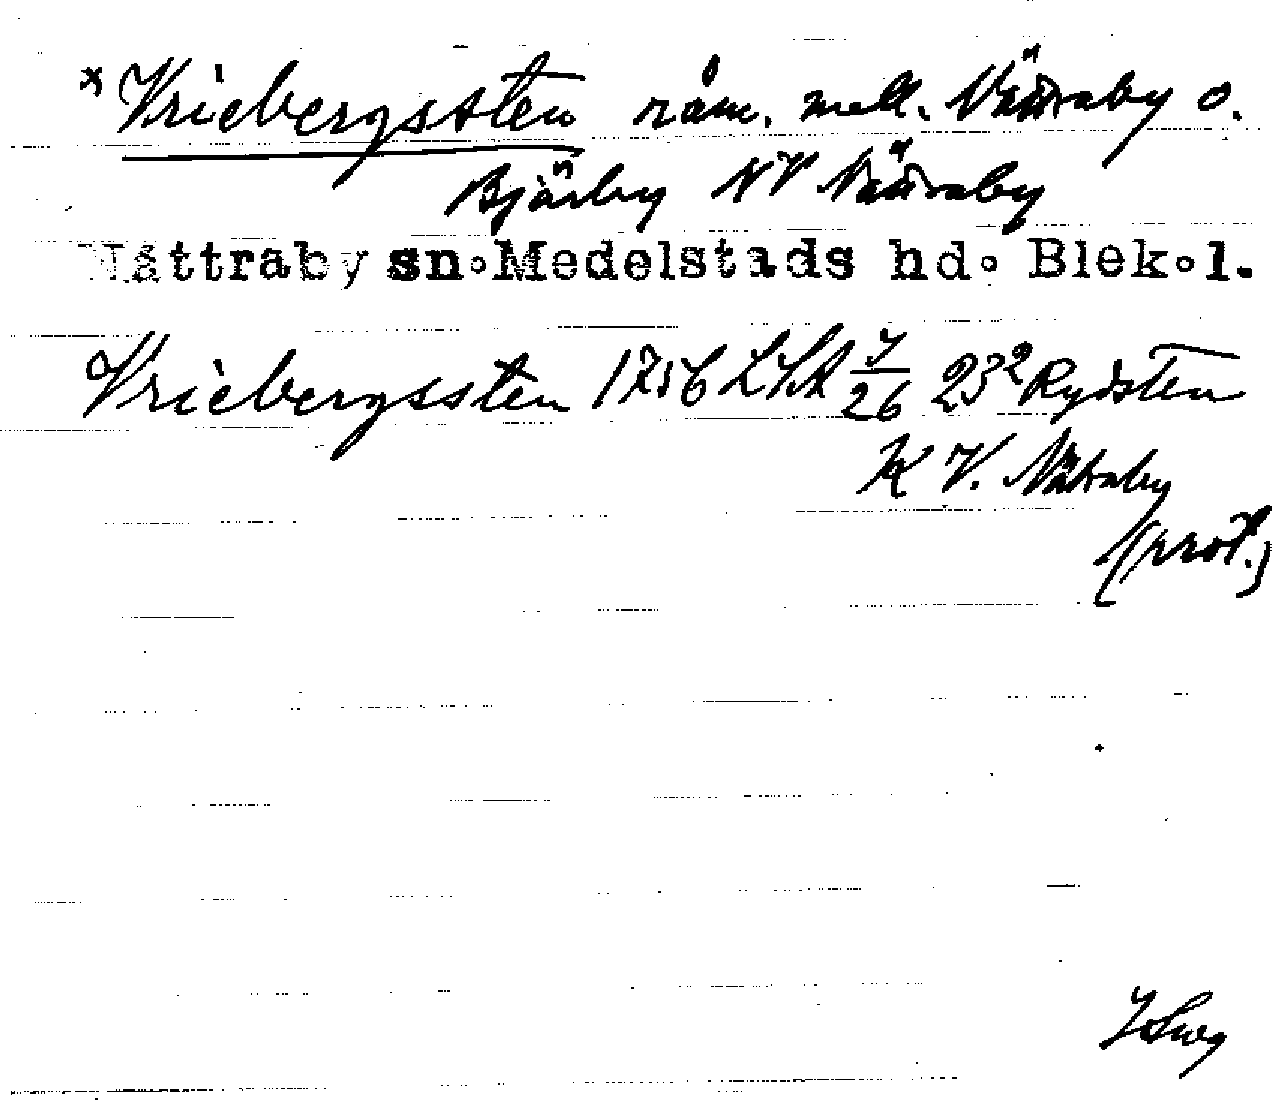 *Vriebergssten råm. mell. Nättraby o.
Bjärby NV Nättraby
Nättraby sn. Medelstads hd. Blek. l.
Vriebergssten 1756 LSA 7/26 23² Rydsten
K V. Nättraby
(prot.)